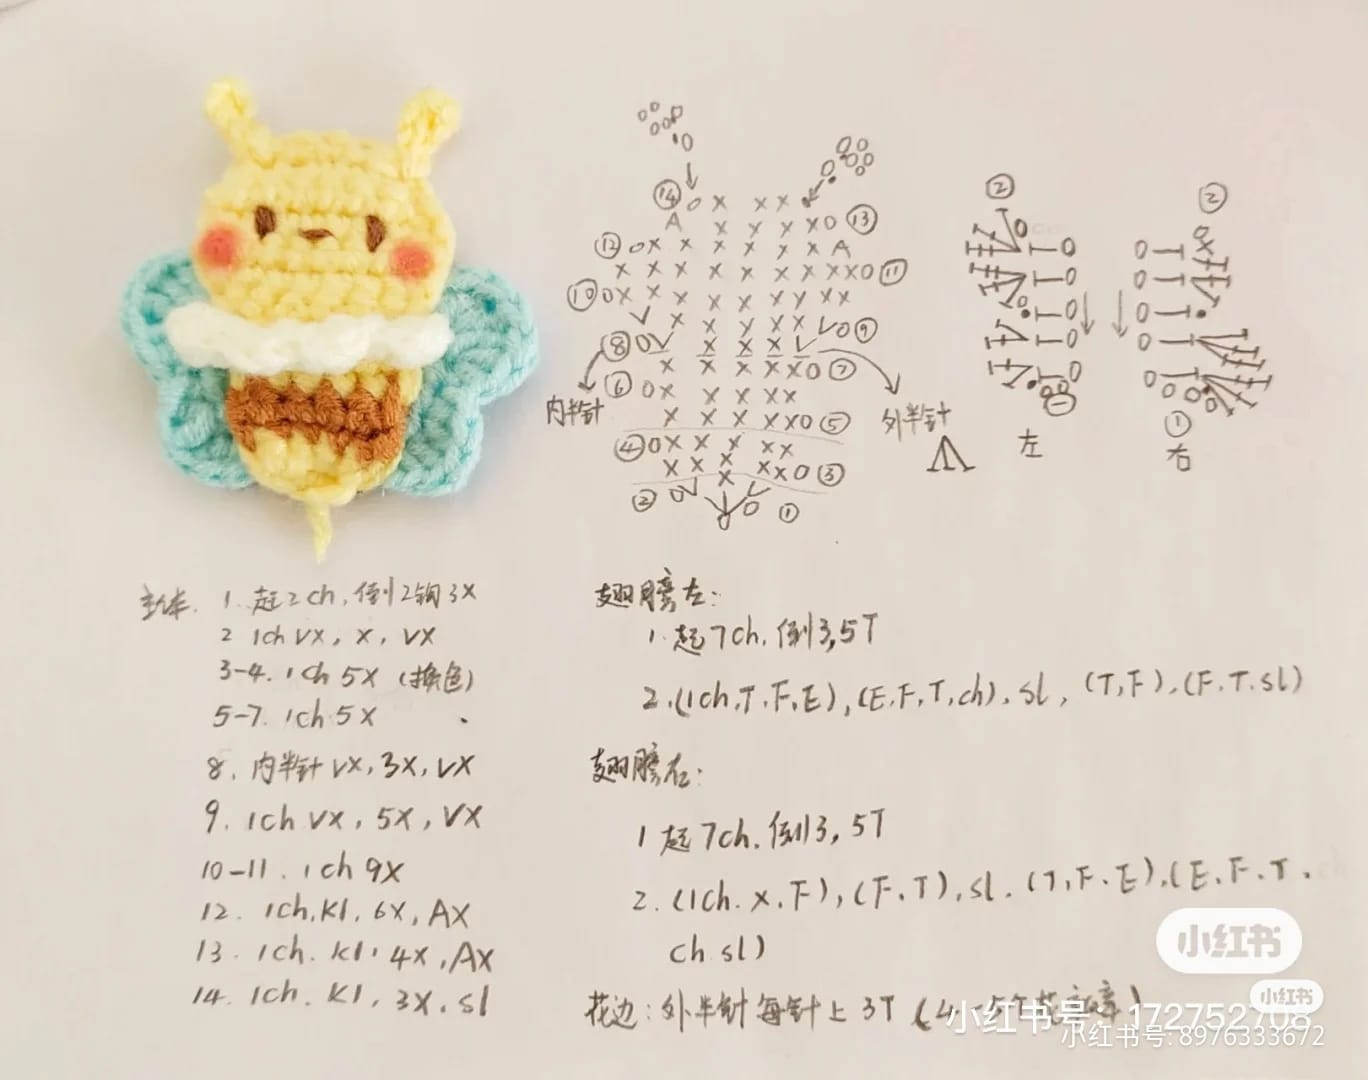 ⑭
⑬
⑫
⑪
⑩
⑨
⑧
⑦
⑥
⑤
④
③
②
①
内半针
外半针
②
左
②
①
右
主体. 1. 起2ch, 倒2钩3X
2 1ch VX, X, VX
3-4. 1ch 5X (换色)
5-7. 1ch 5X
8. 内半针 VX, 3X, VX
9. 1ch VX, 5X, VX
10-11. 1ch 9X
12. 1ch, K1, 6X, AX
13. 1ch. K1, 4X, AX
14. 1ch. K1, 3X, sl
翅膀左:
1. 起7ch. 倒3, 5T
2. (1ch, T, F, E), (E, F, T, ch), sl, (T, F), (F, T, sl)
翅膀右:
1 起7ch. 倒3, 5T
2. (1ch. X, F), (F, T), sl. (T, F, E), (E, F, T,
ch. sl)
花边: 外半针每针上3T
小红书
小红书
小红书号: 172752708
小红书号: 8976333672